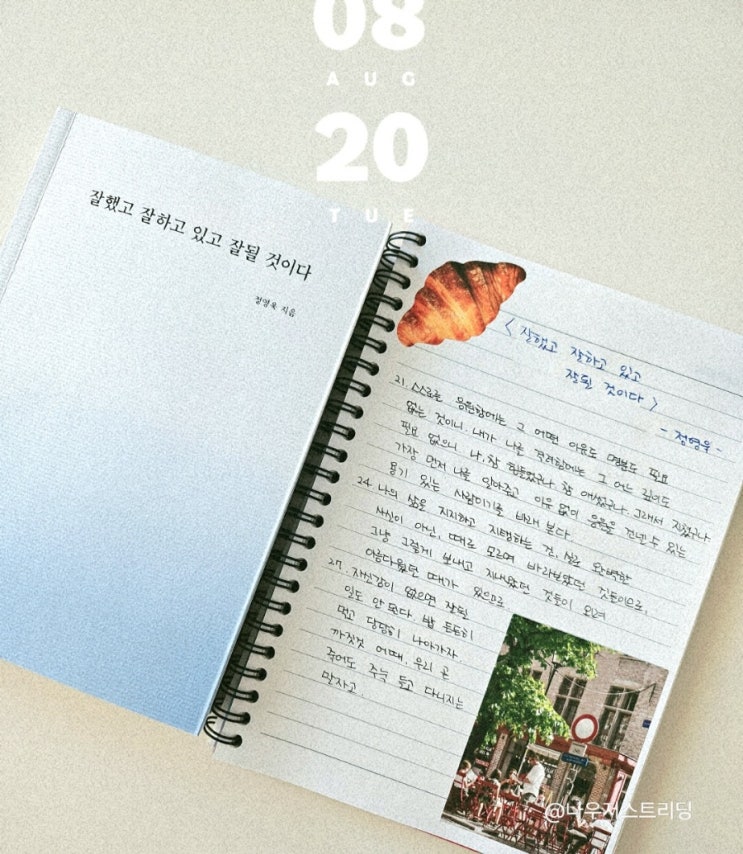 08
AUG
20
TUE
잘했고 잘하고 있고 잘될 것이다
정영욱 지음
< 잘했고 잘하고 있고
잘될 것이다 >
- 정영욱 -
21. 스스로를 응원함에는 그 어떤 이유도 명분도 필요
없는 것이니. 내가 나를 격려함에는 그 어느 깊이도
필요 없으니 나, 참 힘들었구나 참 애썼구나. 그래서 지쳤구나
가장 먼저 나를 알아주고 이유 없이 응원을 건넬 수 있는
용기 있는 사람이기를 바래 본다
24. 나의 삶을 지지하고 지탱하는 건, 실로 완벽한
사실이 아닌, 때로 모르며 바라보았던 것들이므로,
그냥 그렇게 보내고 지내왔던 것들이 모여
아름다웠던 때가 있으므로
27. 자신감이 없으면 잘될
일도 안 된다. 밥 든든히
먹고 당당히 나아가자.
까짓것 어때. 우리 곧
죽어도 주눅 들고 다니지는
말자고.
@나우저스트리딩